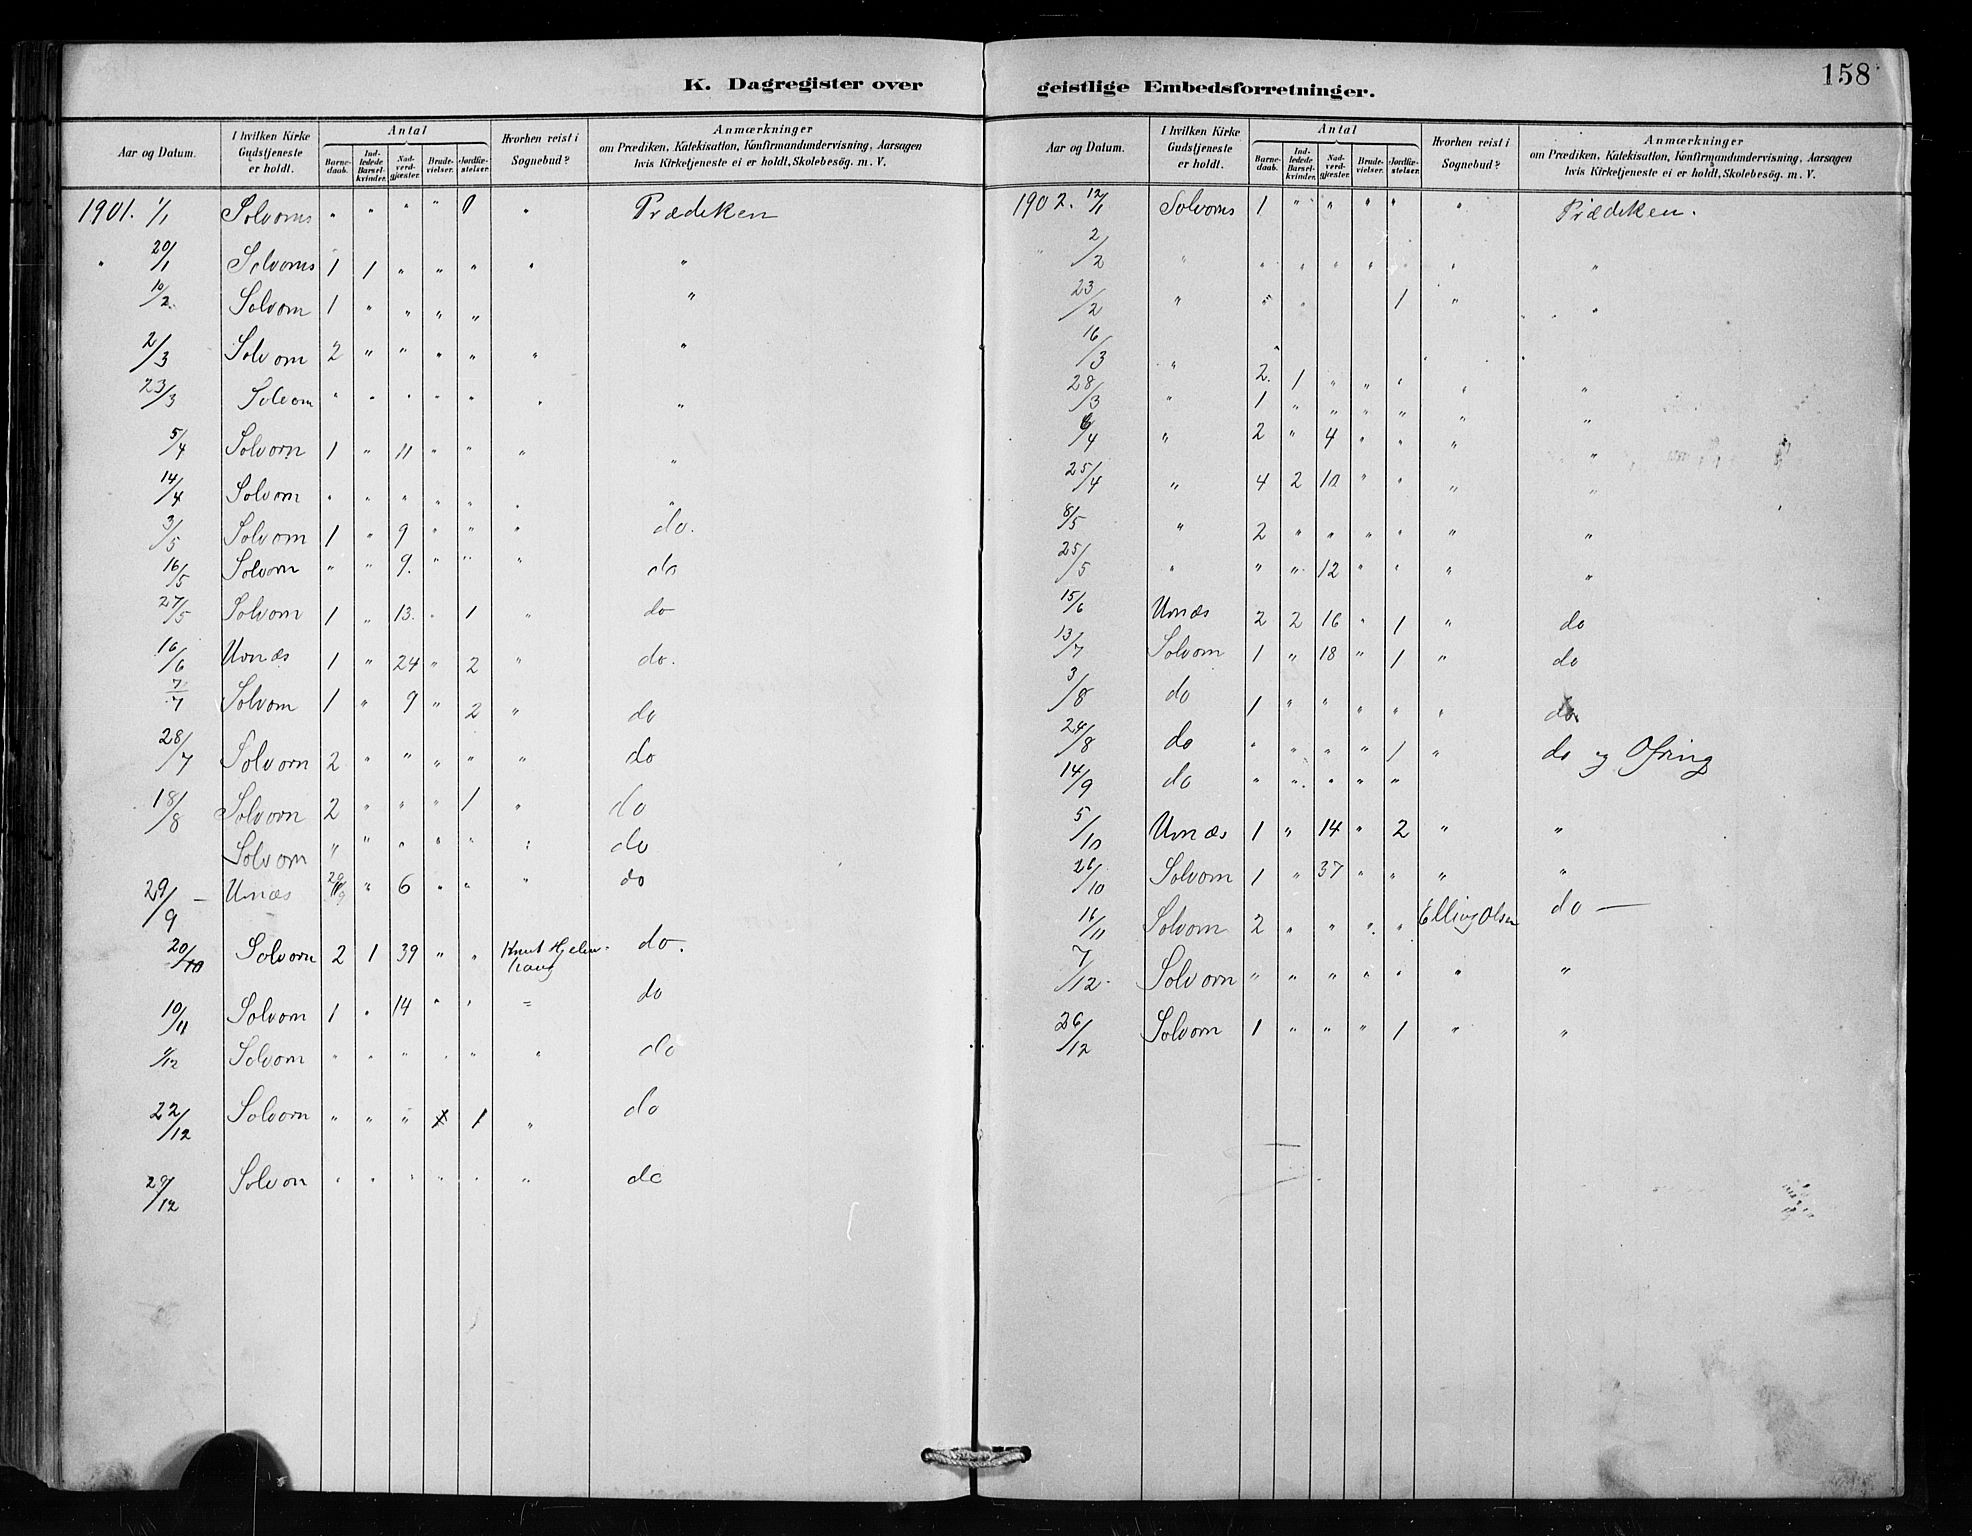 K. Dagregister over
Aar og Datum.
I hvilken Kirke Gudstjeneste er holdt.
Antal
Barne-daab.
Ind-ledede Barsel-kvinder.
Nad-verd-gjæster.
Brude-vielser.
Jordfæ-stelser.
Hvorhen reist i Sognebud?
Anmærkninger
om Prædiken, Katekisation, Konfirmandundervisning, Aarsagen
hvis Kirketjeneste ei er holdt, Skolebesög. m. V.
1901. 1/1 Solvorns " " " " 1 " Prædeken
" 20/1 Solvorns 1 1 " " " " "
10/2 Solvorn 1 " " " " "
2/3 Solvorn 2 " " " " " "
23/3 Solvorn " " " " " " "
5/4 Solvorn 1 " 11 " " " "
14/4 Solvorn " " " " " " "
3/5 Solvorn 1 " 9 " " " do.
16/5 Solvorn " " 9. " " " do
27/5 Solvorn 1 " 13. " 1 " do
16/6 Urnæs 1 " 24 " 2 " do.
7/7 Solvorn 1 " 9 " 2 " do
28/7 Solvorn 2 " " " " " do
18/8 Solvorn 2 " " " 1 " do
Solvorn " " " " " " do
29/9 – Urnæs " 6 " " " do
20/10 Solvorn 2 1 39 " " Knut Hjelm-haug do.
10/11 Solvorn 1 " 14 " " = do
1/12 Solvorn " " " " " " do
22/12 Solvorn " " " 1 1 " do
29/12 Solvorn " " " " " " do
geistlige Embedsforretninger.
158
Aar og Datum.
I hvilken Kirke Gudstjeneste er holdt.
Antal
Barne-daab.
Ind-ledede Barsel-kvinder.
Nad-verd-gjæster.
Brude-vielser.
Jordfæ-stelser.
Hvorhen reist i Sognebud?
Anmærkninger
om Prædiken, Katekisation, Konfirmandundervisning, Aarsagen
hvis Kirketjeneste ei er holdt, Skolebesög. m. V.
1902. 12/1 Solvorns 1 " " " " " Prædeken.
" 2/2 " " " " " " " "
23/2 " " " 1 " "
16/3 " 2. 1 " " " " "
28/3 " 1 " " " " " "
6/4 " 2 " 4 " " " "
25/4 " 4 2 10 " " " "
8/5 " 2 " " " " " "
25/5 " " " 12 " " " "
15/6 Urnæs 2 2 16 " 1 " do
13/7 Solvorn 1 " 18 " 1 " do
3/8 do 1 " " " " " do
24/8 do " " " " 1 " do og Ofring
14/9 do " " " " "
5/10 Urnæs 1 " 14 " 2 " "
26/10 Solvorn 1 " 37 " " " "
16/11 Solvorn 2 " " " " Elling Olsen do —
7/12. Solvorn " " " " " " "
26/12 Solvorn 1 " " " 1 " "